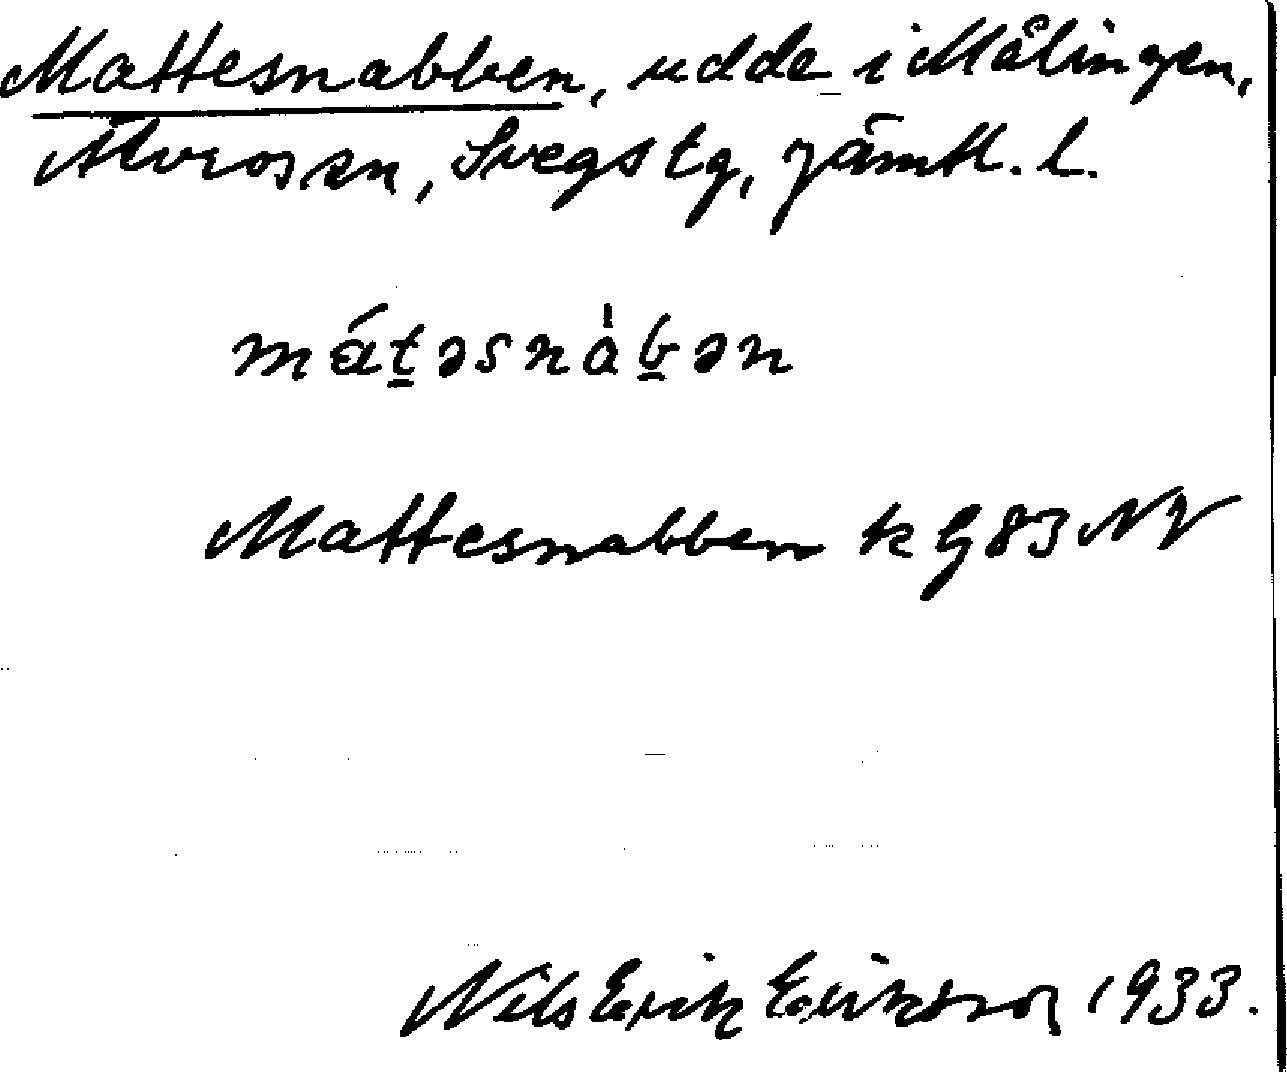 Mattesnabben, udde i Målingen,
Älvros sn, Svegs tg, Jämtl. l.
mát̲əsnàb̲ən
Mattesnabben k G 83 NV
Nils Erik Eriksson 1933.